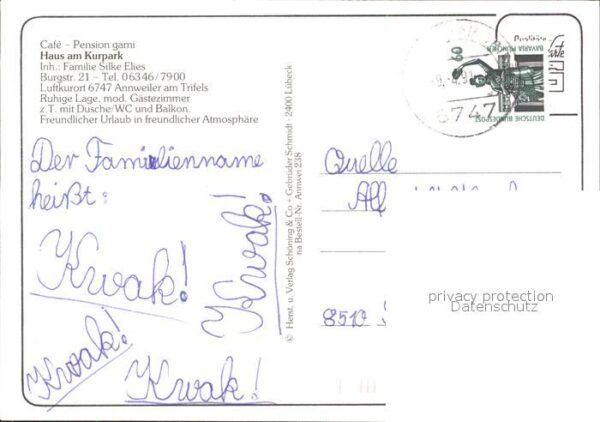 Café – Pension garni
Haus am Kurpark
Inh.: Familie Silke Elies
Burgstr. 21 – Tel. 06346/7900
Luftkurort 6747 Annweiler am Trifels
Ruhige Lage, mod. Gästezimmer
z.T. mit Dusche/WC und Balkon.
Freundlicher Urlaub in freundlicher Atmosphäre
Der Familienname
heißt:
Kwak!
Kwak!
Kwak!
Kwak!
© Herst. u. Verlag Schöning & Co + Gebrüder Schmidt · 2400 Lübeck
na Bestell-Nr. Annwei 238
60
BAVARIA MÜNCHEN
DEUTSCHE BUNDESPOST
6747
Quelle
8510
privacy protection
Datenschutz